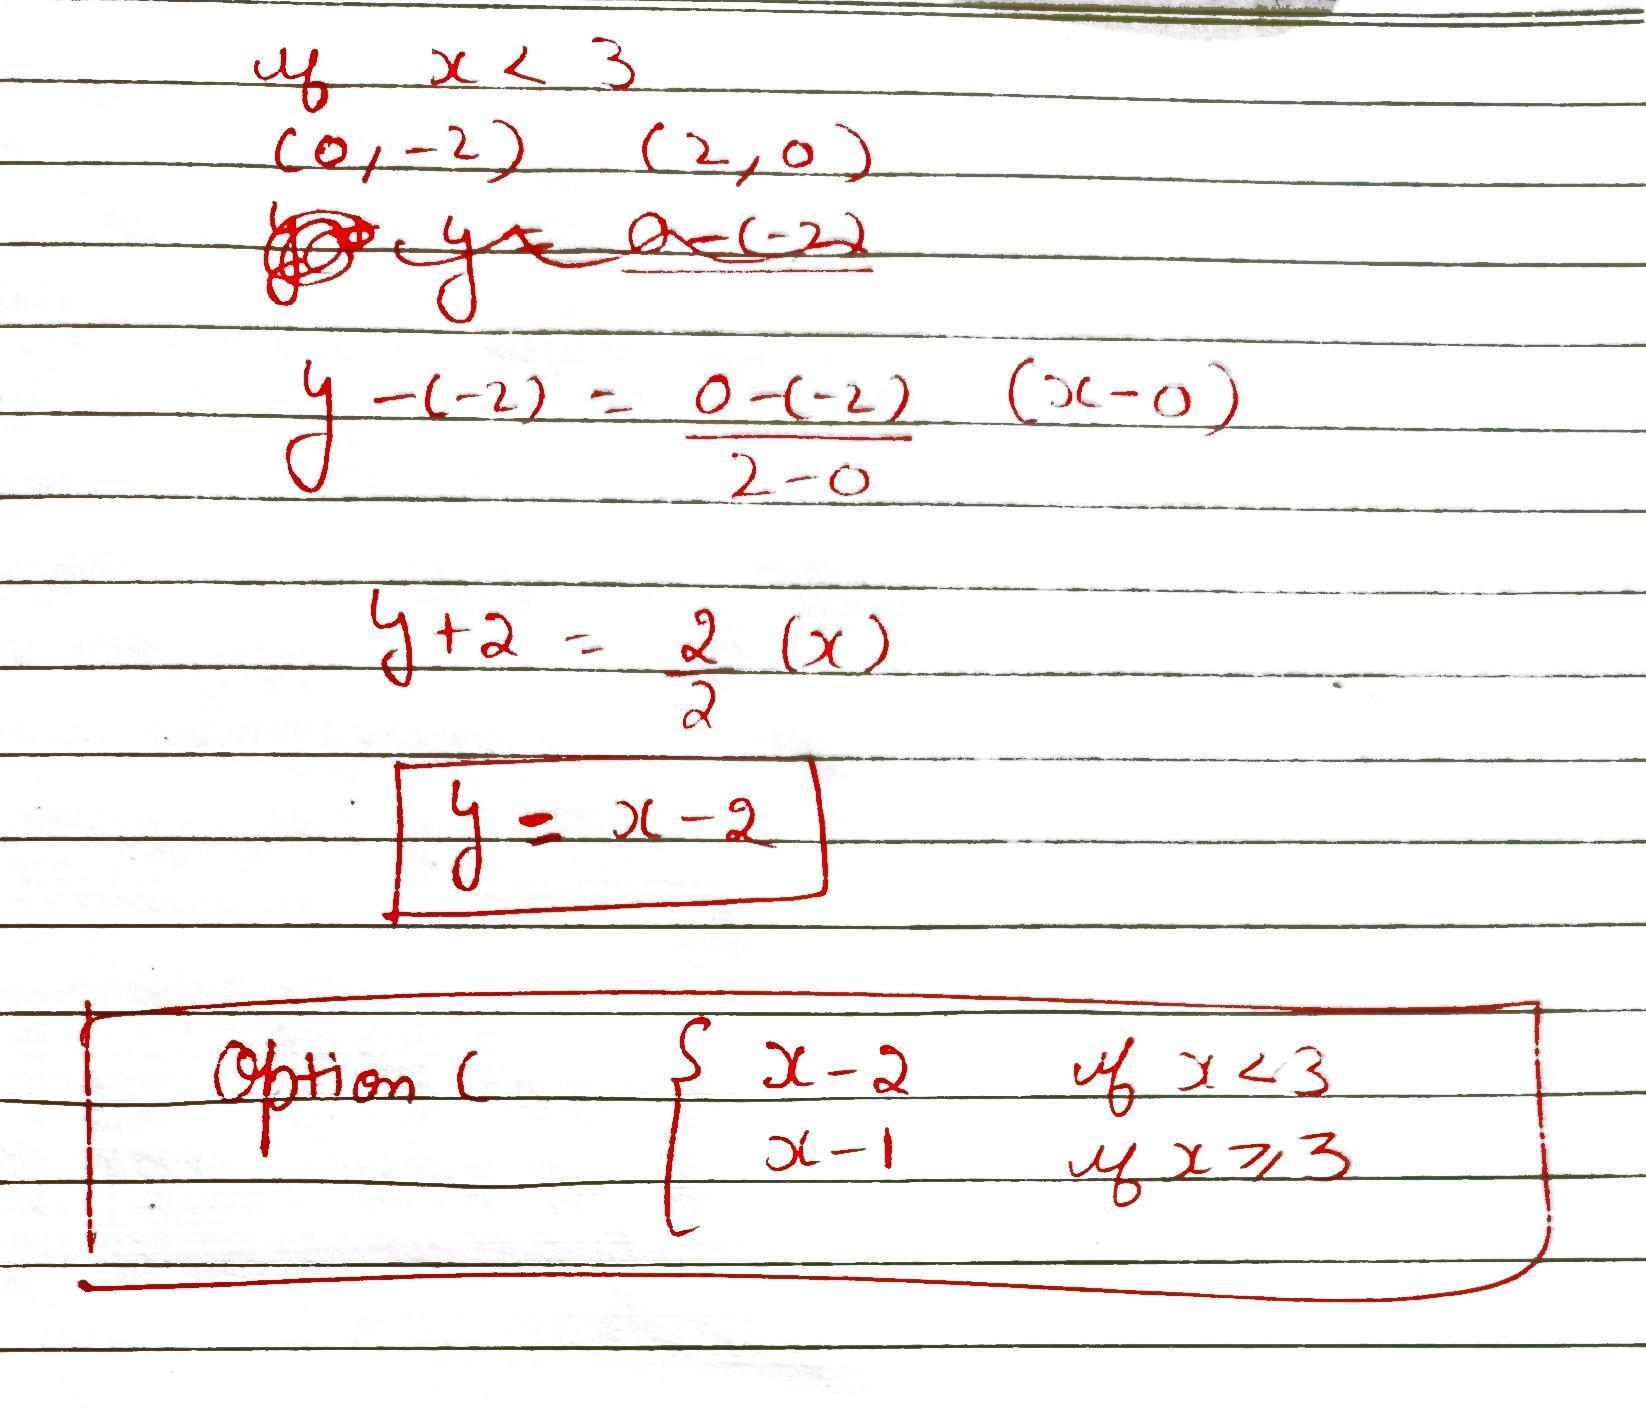 if x < 3
(0, -2) (2, 0)
y = 0-(-2)
y -(-2) = 0-(-2) (x-0)
2-0
y+2 = 2 (x)
2
y = x-2
Option C { x-2 if x<3
x-1 if x ⩾ 3